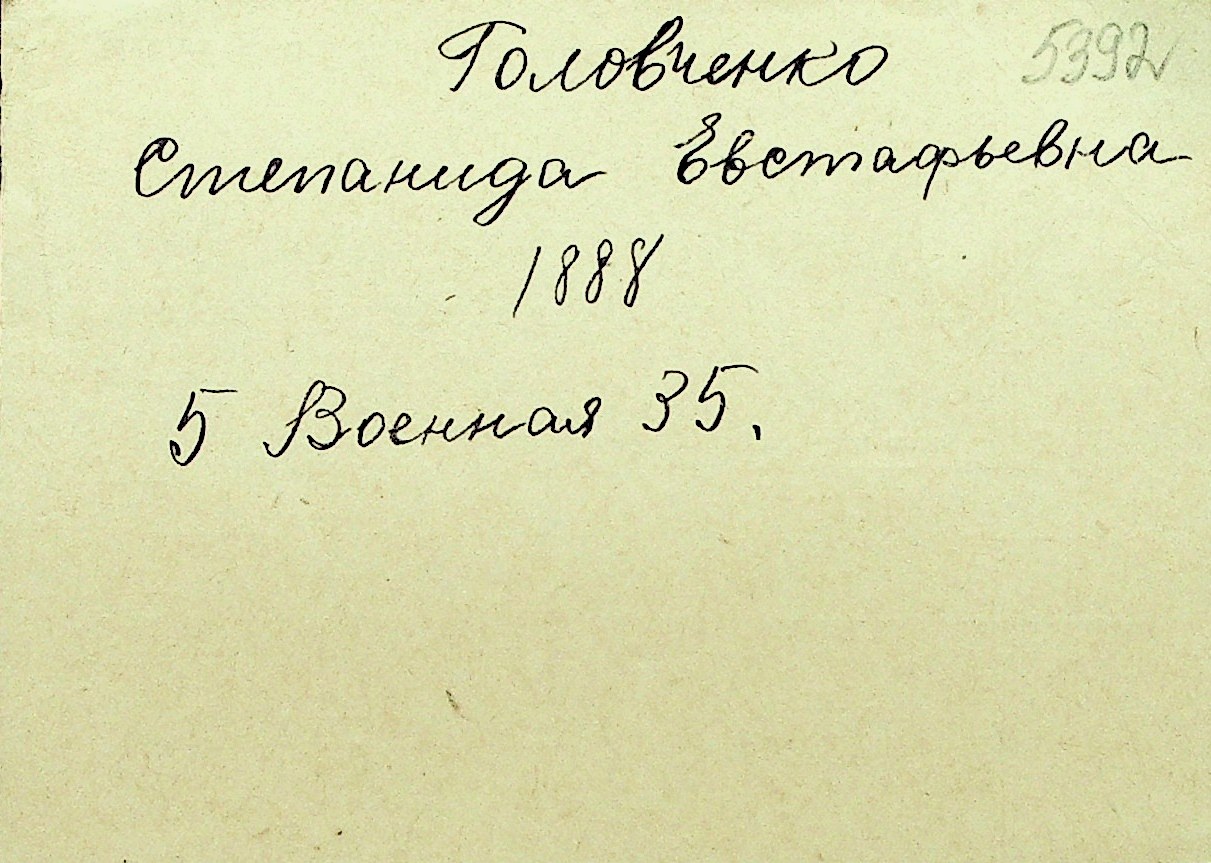 Головченко 5392
Степанида Евстафьевна
1888
5 Военная 35.